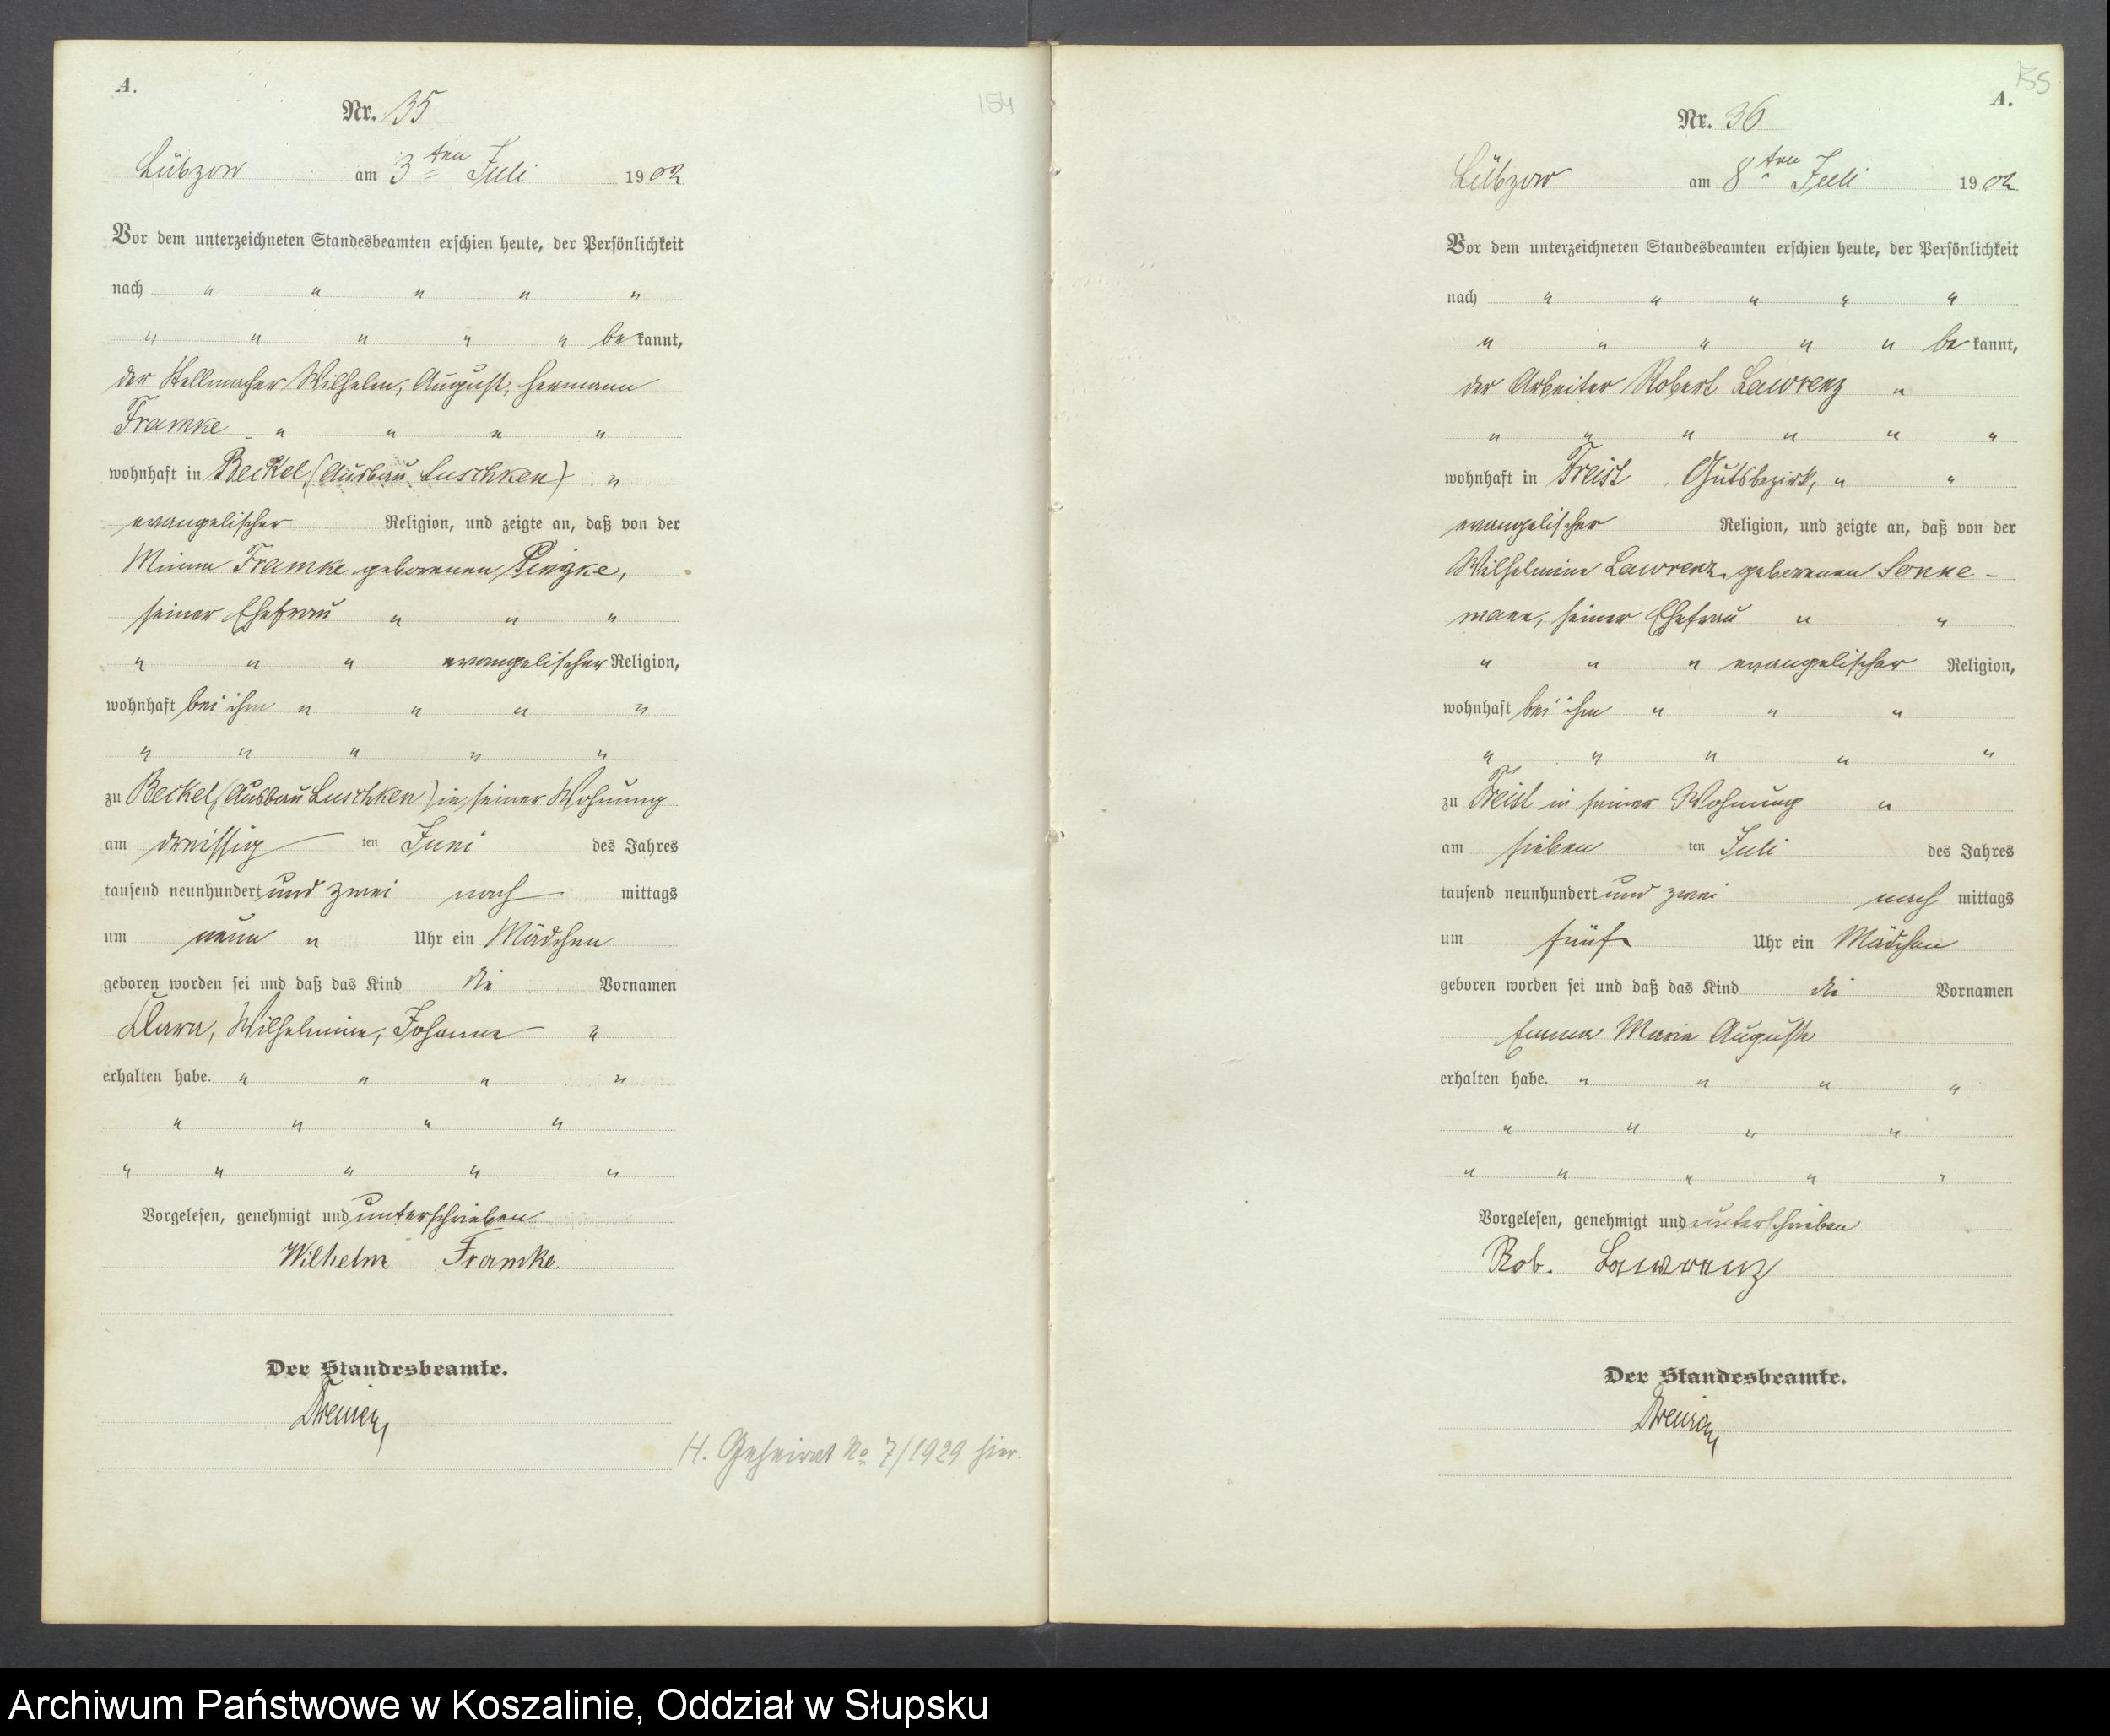 A.
154
Nr. 35
Lübzow am 3ten Juli 1902
Vor dem unterzeichneten Standesbeamten erschien heute, der Persönlichkeit
nach " " " " "
" " " " " be kannt,
der Stellmacher Wilhelm, August, Hermann
Framke " " " "
wohnhaft in Beckel, (Ausbau Luschken) "
evangelischer Religion, und zeigte an, daß von der
Minna Framke geborenen
seiner Ehefrau " " "
" " " evangelischer Religion,
wohnhaft bei ihm " " " "
" " " " "
zu Beckel, (Ausbau Luschken) in seiner Wohnung
am dreissig ten Juni des Jahres
tausend neunhundert und zwei nach mittags
um neun " Uhr ein Mädchen
geboren worden sei und daß das Kind die Vornamen
Clara, Wilhelmine, Johanna "
erhalten habe. " " " "
" " " "
" " " " "
Vorgelesen, genehmigt und unterschrieben
Wilhelm Framke.
Der Standesbeamte.
H. Geheirat No 7/1929 hier.
155
A.
Nr. 36
Lübzow am 8ten Juli 1902
Vor dem unterzeichneten Standesbeamten erschien heute, der Persönlichkeit
nach " " " " "
" " " " " be kannt,
der Arbeiter Robert Lawrenz "
" " " " " "
wohnhaft in Freist, Gutsbezirk, " "
evangelischer Religion, und zeigte an, daß von der
Wilhelmine Lawrenz geborenen Sonne-
mann, seiner Ehefrau " "
" " " evangelischer Religion,
wohnhaft bei ihm " " "
" " " " "
zu Freist in seiner Wohnung "
am sieben ten Juli des Jahres
tausend neunhundert und zwei nach mittags
um fünf Uhr ein Mädchen
geboren worden sei und daß das Kind die Vornamen
Emma Marie Auguste
erhalten habe. " " " "
" " " "
" " " " "
Vorgelesen, genehmigt und unterschrieben
Rob. Lawrenz
Der Standesbeamte.
Archiwum Państwowe w Koszalinie, Oddział w Słupsku